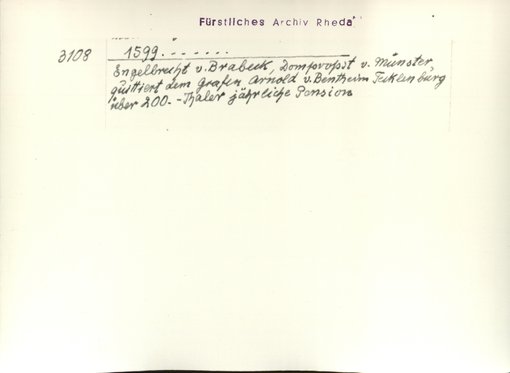 Fürstliches Archiv Rheda
3108
1599.......
Engelbrecht v. Brabeck, Dompropst v. Münster,
quittiert dem Grafen Arnold v. Bentheim Tecklenburg
über 200.- Thaler jährliche Pension